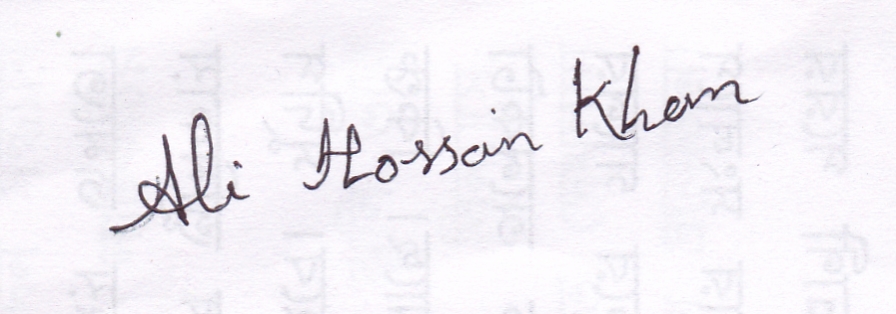 Ali Hossain Khan